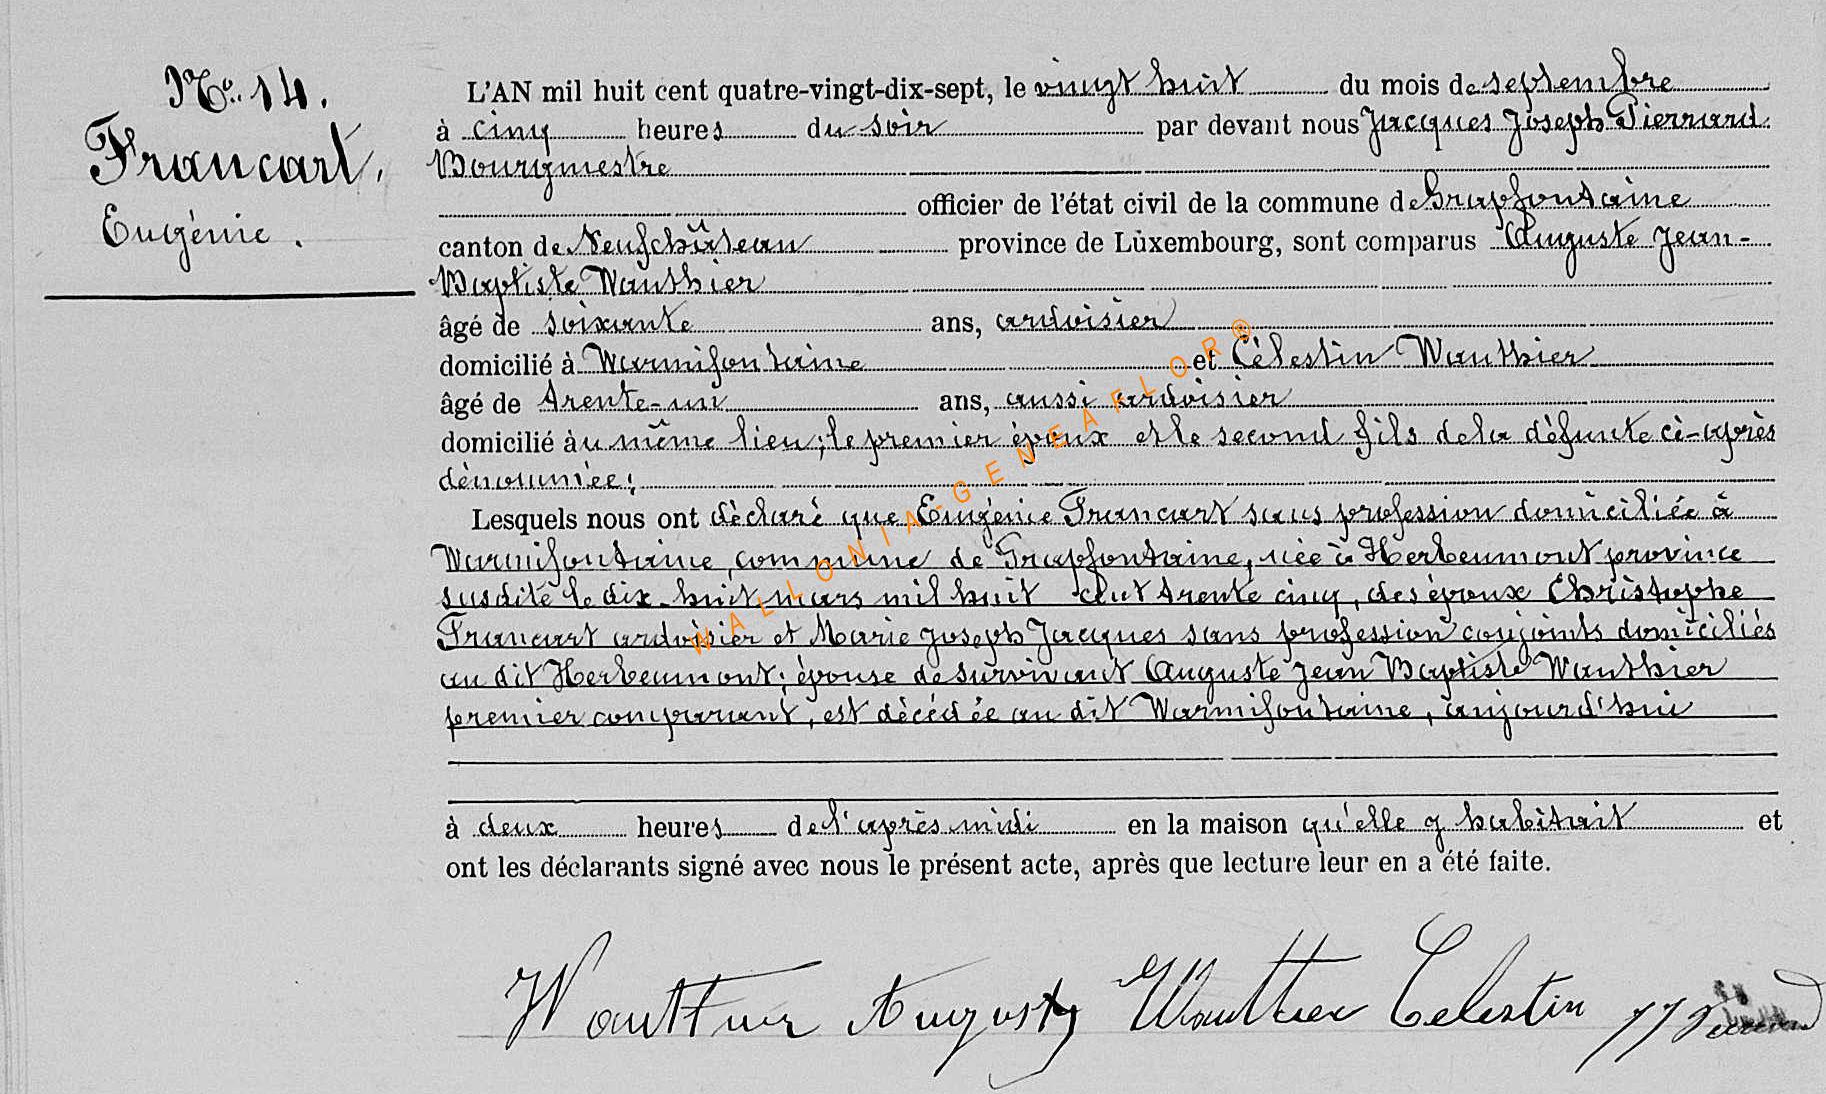 No. 14.
Francart.
Eugénie.
L'AN mil huit cent quatre-vingt-dix-sept, le vingt huit du mois de septembre
à cinq heures du soir par devant nous Jacques Joseph Pierrard
Bourgmestre
officier de l'état civil de la commune de Grapfontaine
canton de Neufchâteau province de Luxembourg, sont comparus Auguste Jean-
Baptiste Wauthier
âgé de soixante ans, ardoisier
domicilié à Warmifontaine et Célestin Wauthier
âgé de trente-un ans, aussi ardoisier
domicilié àu même lieu; le premier époux et le second fils dela défunte ci-après
dénommée;
Lesquels nous ont déclaré que Eugénie Francart sans profession domiciliée à
Warmifontaine, commune de Grapfontaine, née à Herbeumont province
susdite le dix-huit mars mil huit cent trente cinq, des époux Christophe
Francart ardoisier et Marie Joseph Jacques sans profession conjoints domiciliés
au dit Herbeumont; épouse de survivant Auguste Jean Baptiste Wauthier
premier comparant, est décédée au dit Warmifontaine, aujourd'hui
à deux heures de l'après midi en la maison qu'elle y habitait et
ont les déclarants signé avec nous le présent acte, après que lecture leur en a été faite.
Wauthier Auguste Wauthier Celestin JJ Pierrard
WALLONIA-GENEAFLOR®